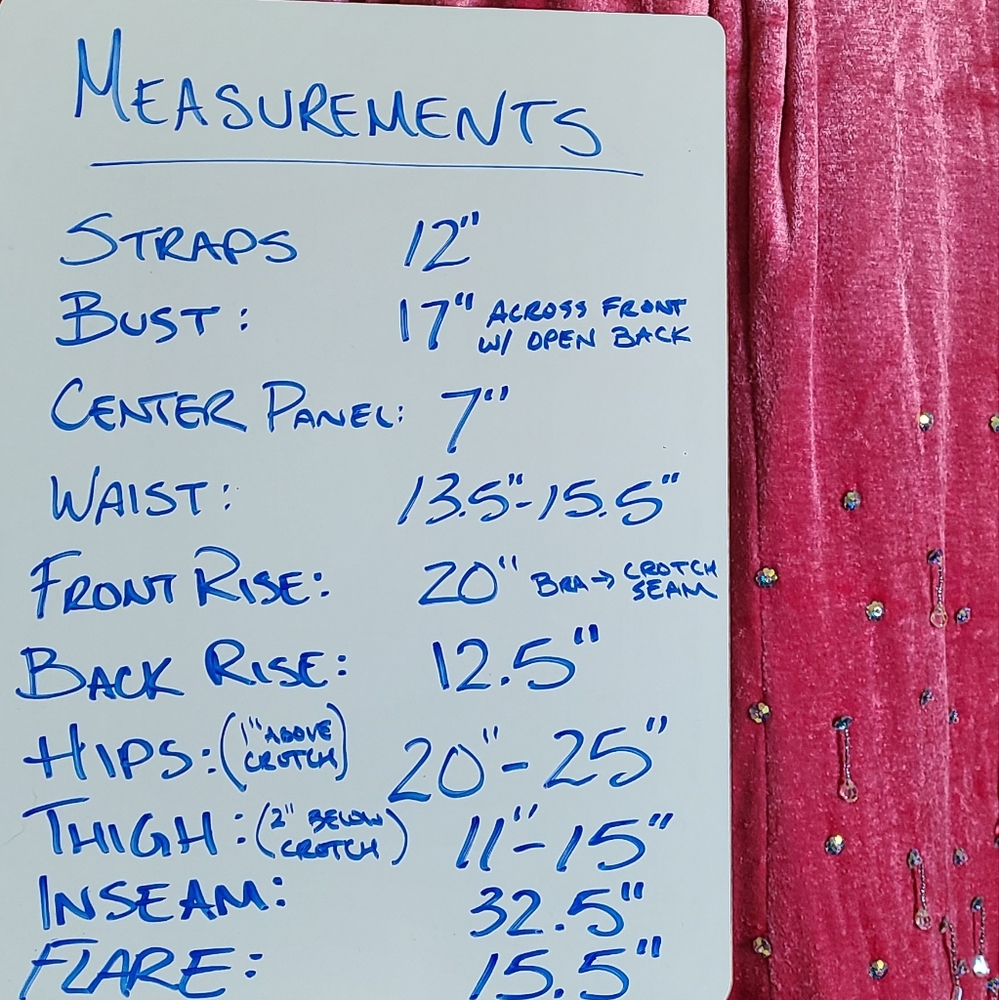 MEASUREMENTS
STRAPS 12"
BUST: 17" ACROSS FRONT
W/ OPEN BACK
CENTER PANEL: 7"
WAIST: 13.5"-15.5"
FRONT RISE: 20" BRA→ CROTCH
SEAM
BACK RISE: 12.5"
HIPS: (1" ABOVE
CROTCH) 20"-25"
THIGH: (2" BELOW
CROTCH) 11"-15"
INSEAM: 32.5"
FLARE: 15.5"